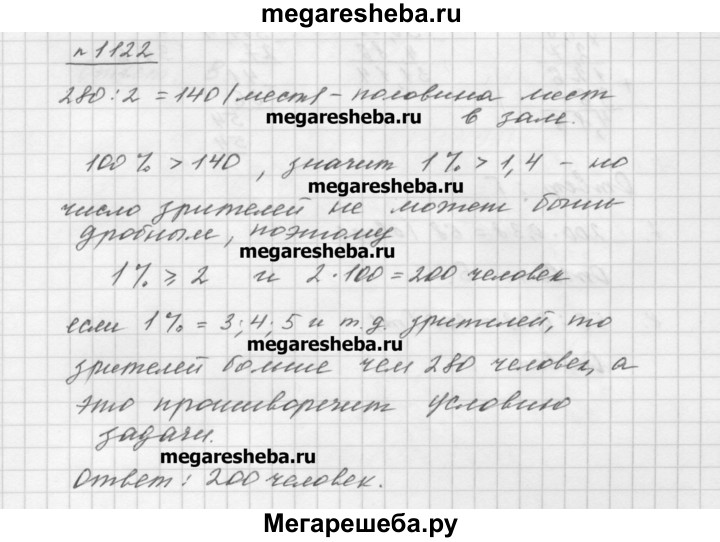 megaresheba.ru
№ 1122
280 : 2 = 140 (мест) – половина мест
megaresheba.ru в зале.
100% > 140, значит 1% > 1,4 – но
megaresheba.ru
число зрителей не может быть
дробным, поэтому
megaresheba.ru
1% ≥ 2 и 2 · 100 = 200 человек
если 1% = 3; 4; 5 и т.д. зрителей, то
megaresheba.ru
зрителей больше чем 280 человек, а
это противоречит условию
задачи.
megaresheba.ru
Ответ: 200 человек.
Мегарешеба.ру